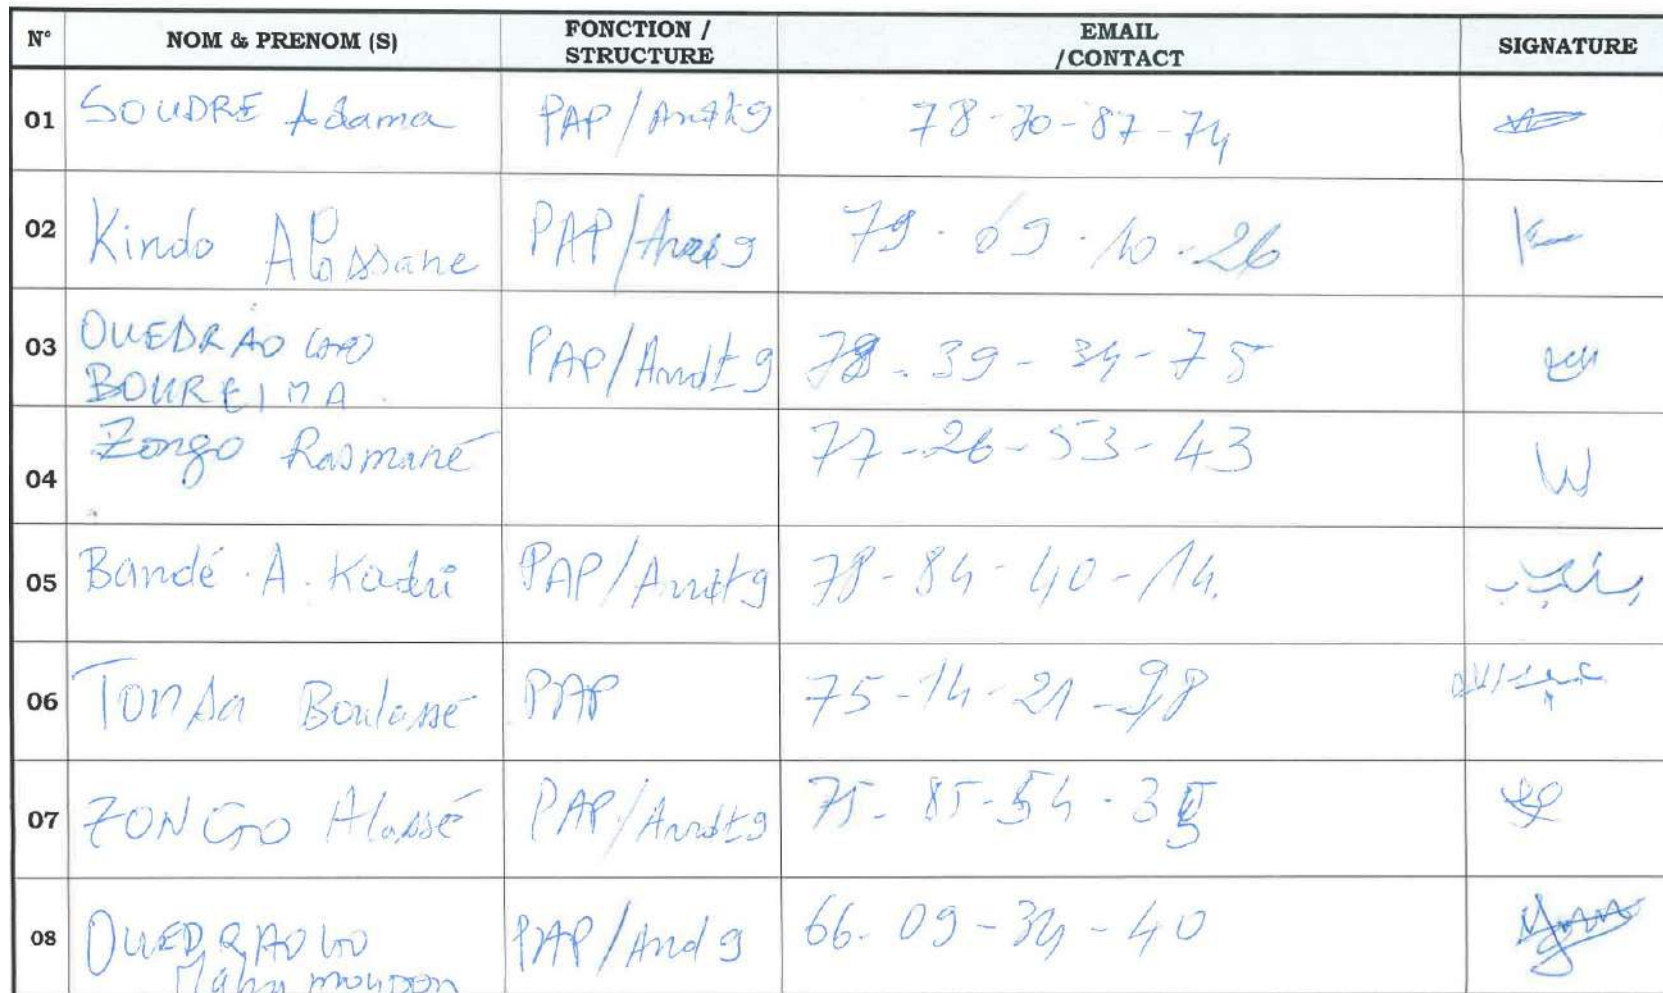 N° NOM & PRENOM (S) FONCTION / STRUCTURE EMAIL /CONTACT SIGNATURE
01 SOUDRE Adama PAP/Arrdt 9 78-70-87-74
02 Kindo Alassane PAP/ 79-69-10-26
03 OUEDRAOGO BOUREIMA PAP/Arrdt 9 78-39-34-75
04 Zongo Rasmané 77-26-53-43
05 Bandé A. Kadri PAP/Arrdt 9 78-84-40-14
06 TONDA Boulassé PAP 75-14-21-98
07 ZONGO Alassé PAP/Arrdt 9 75-85-54-35
08 OUEDRAOGO PAP/Arrd 9 66-09-34-40